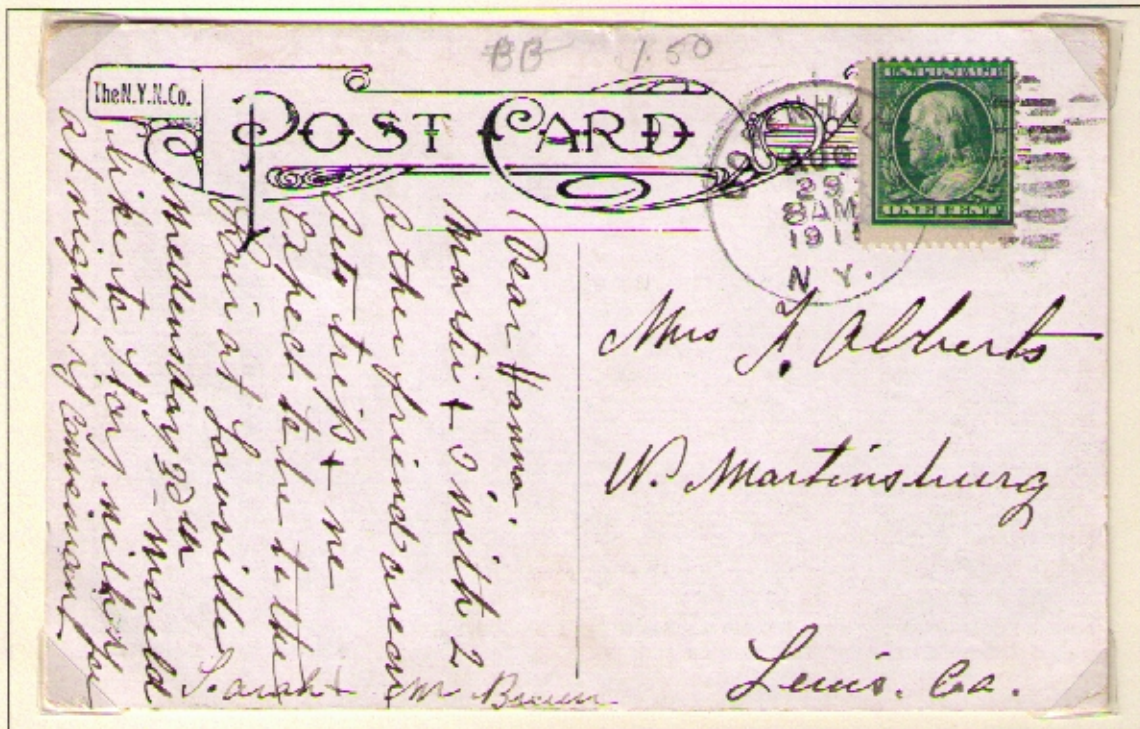 BB 1.50
The N.Y.N.Co.
POST CARD
AUG
29
8 AM
191
N.Y.
Dear Hanna.
Martie + I with 2
other friends are on
Auto trip + we
Expect to be to the
Fair at Lowville
Wednesday 30th would
like to Stay with you
at night if convenient for
Sarah + M Brown
Mrs F. Alberts
W. Martinsburg
Lewis. Co.